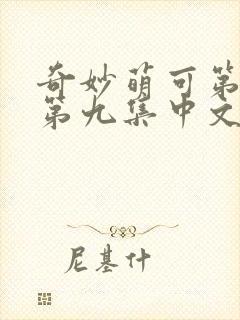 奇妙萌可第
第九集中文
尼基什